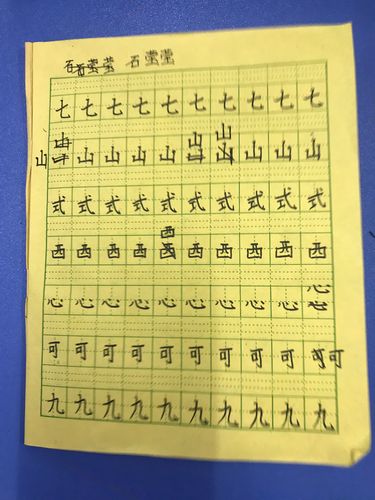 石莹莹 石莹莹
七七七七七七七七七七
山山山山山山山山山山
式式式式式式式式式式
西西西西西西西西西西
心心心心心心心心心心
可可可可可可可可可可
九九九九九九九九九九